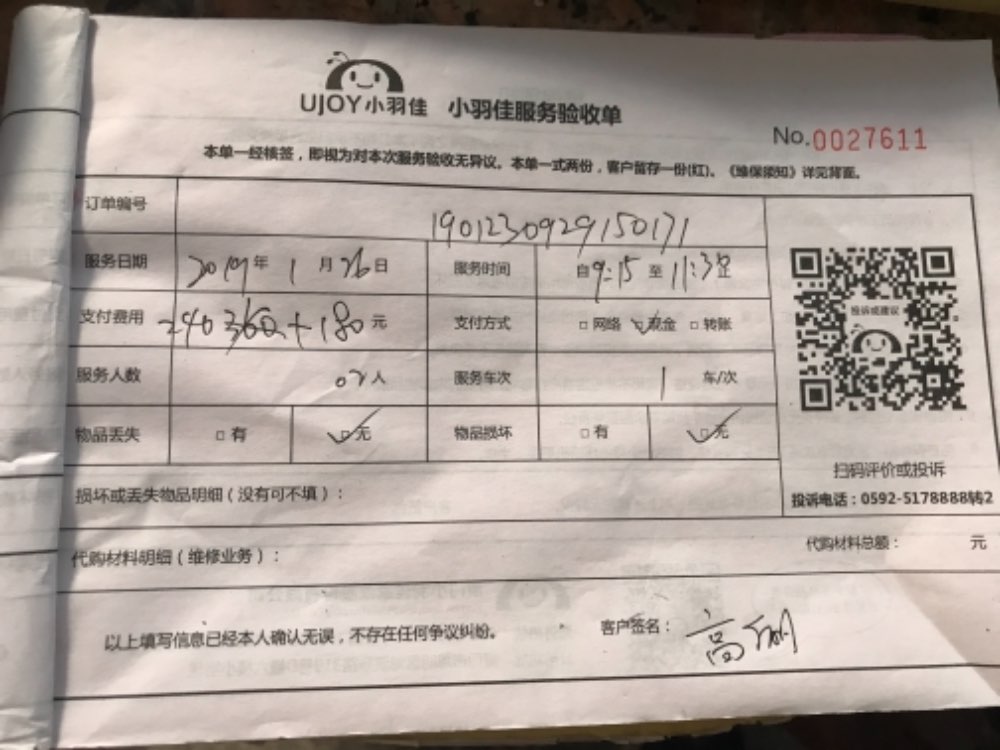 UJOY小羽佳 小羽佳服务验收单
No.0027611
本单一经核签，即视为对本次服务验收无异议。本单一式两份，客户留存一份(红)。《维保须知》详见背面。
订单编号 190123092915017​1
服务日期 2019年1月26日 服务时间 自9:15至11:30止
支付费用 240 360+180元 支付方式 □网络 □现金 □转账
服务人数 02人 服务车次 1 车/次
物品丢失 □有 □无 物品损坏 □有 □无
投诉或建议
扫码评价或投诉
投诉电话：0592-5178888转2
损坏或丢失物品明细（没有可不填）：
代购材料明细（维修业务）： 代购材料总额： 元
以上填写信息已经本人确认无误，不存在任何争议纠纷。 客户签名：高